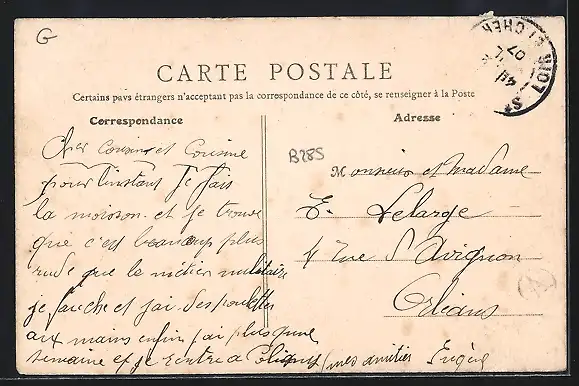 G
LOIR-ET-CHER
07
CARTE POSTALE
Certains pays étrangers n'acceptant pas la correspondance de ce côté, se renseigner à la Poste
Correspondance
Adresse
B285
Cher Cousin et Cousine
pour l'instant Je fais
la moisson et je trouve
que c'est beaucoup plus
rude que le métier militaire
je fauche et j'ai des
aux mains enfin j'ai plus qu'une
semaine et je rentre a mes amitiés
Monsieur et Madame
E. Lelarge
4 rue d'Avignon
Orléans